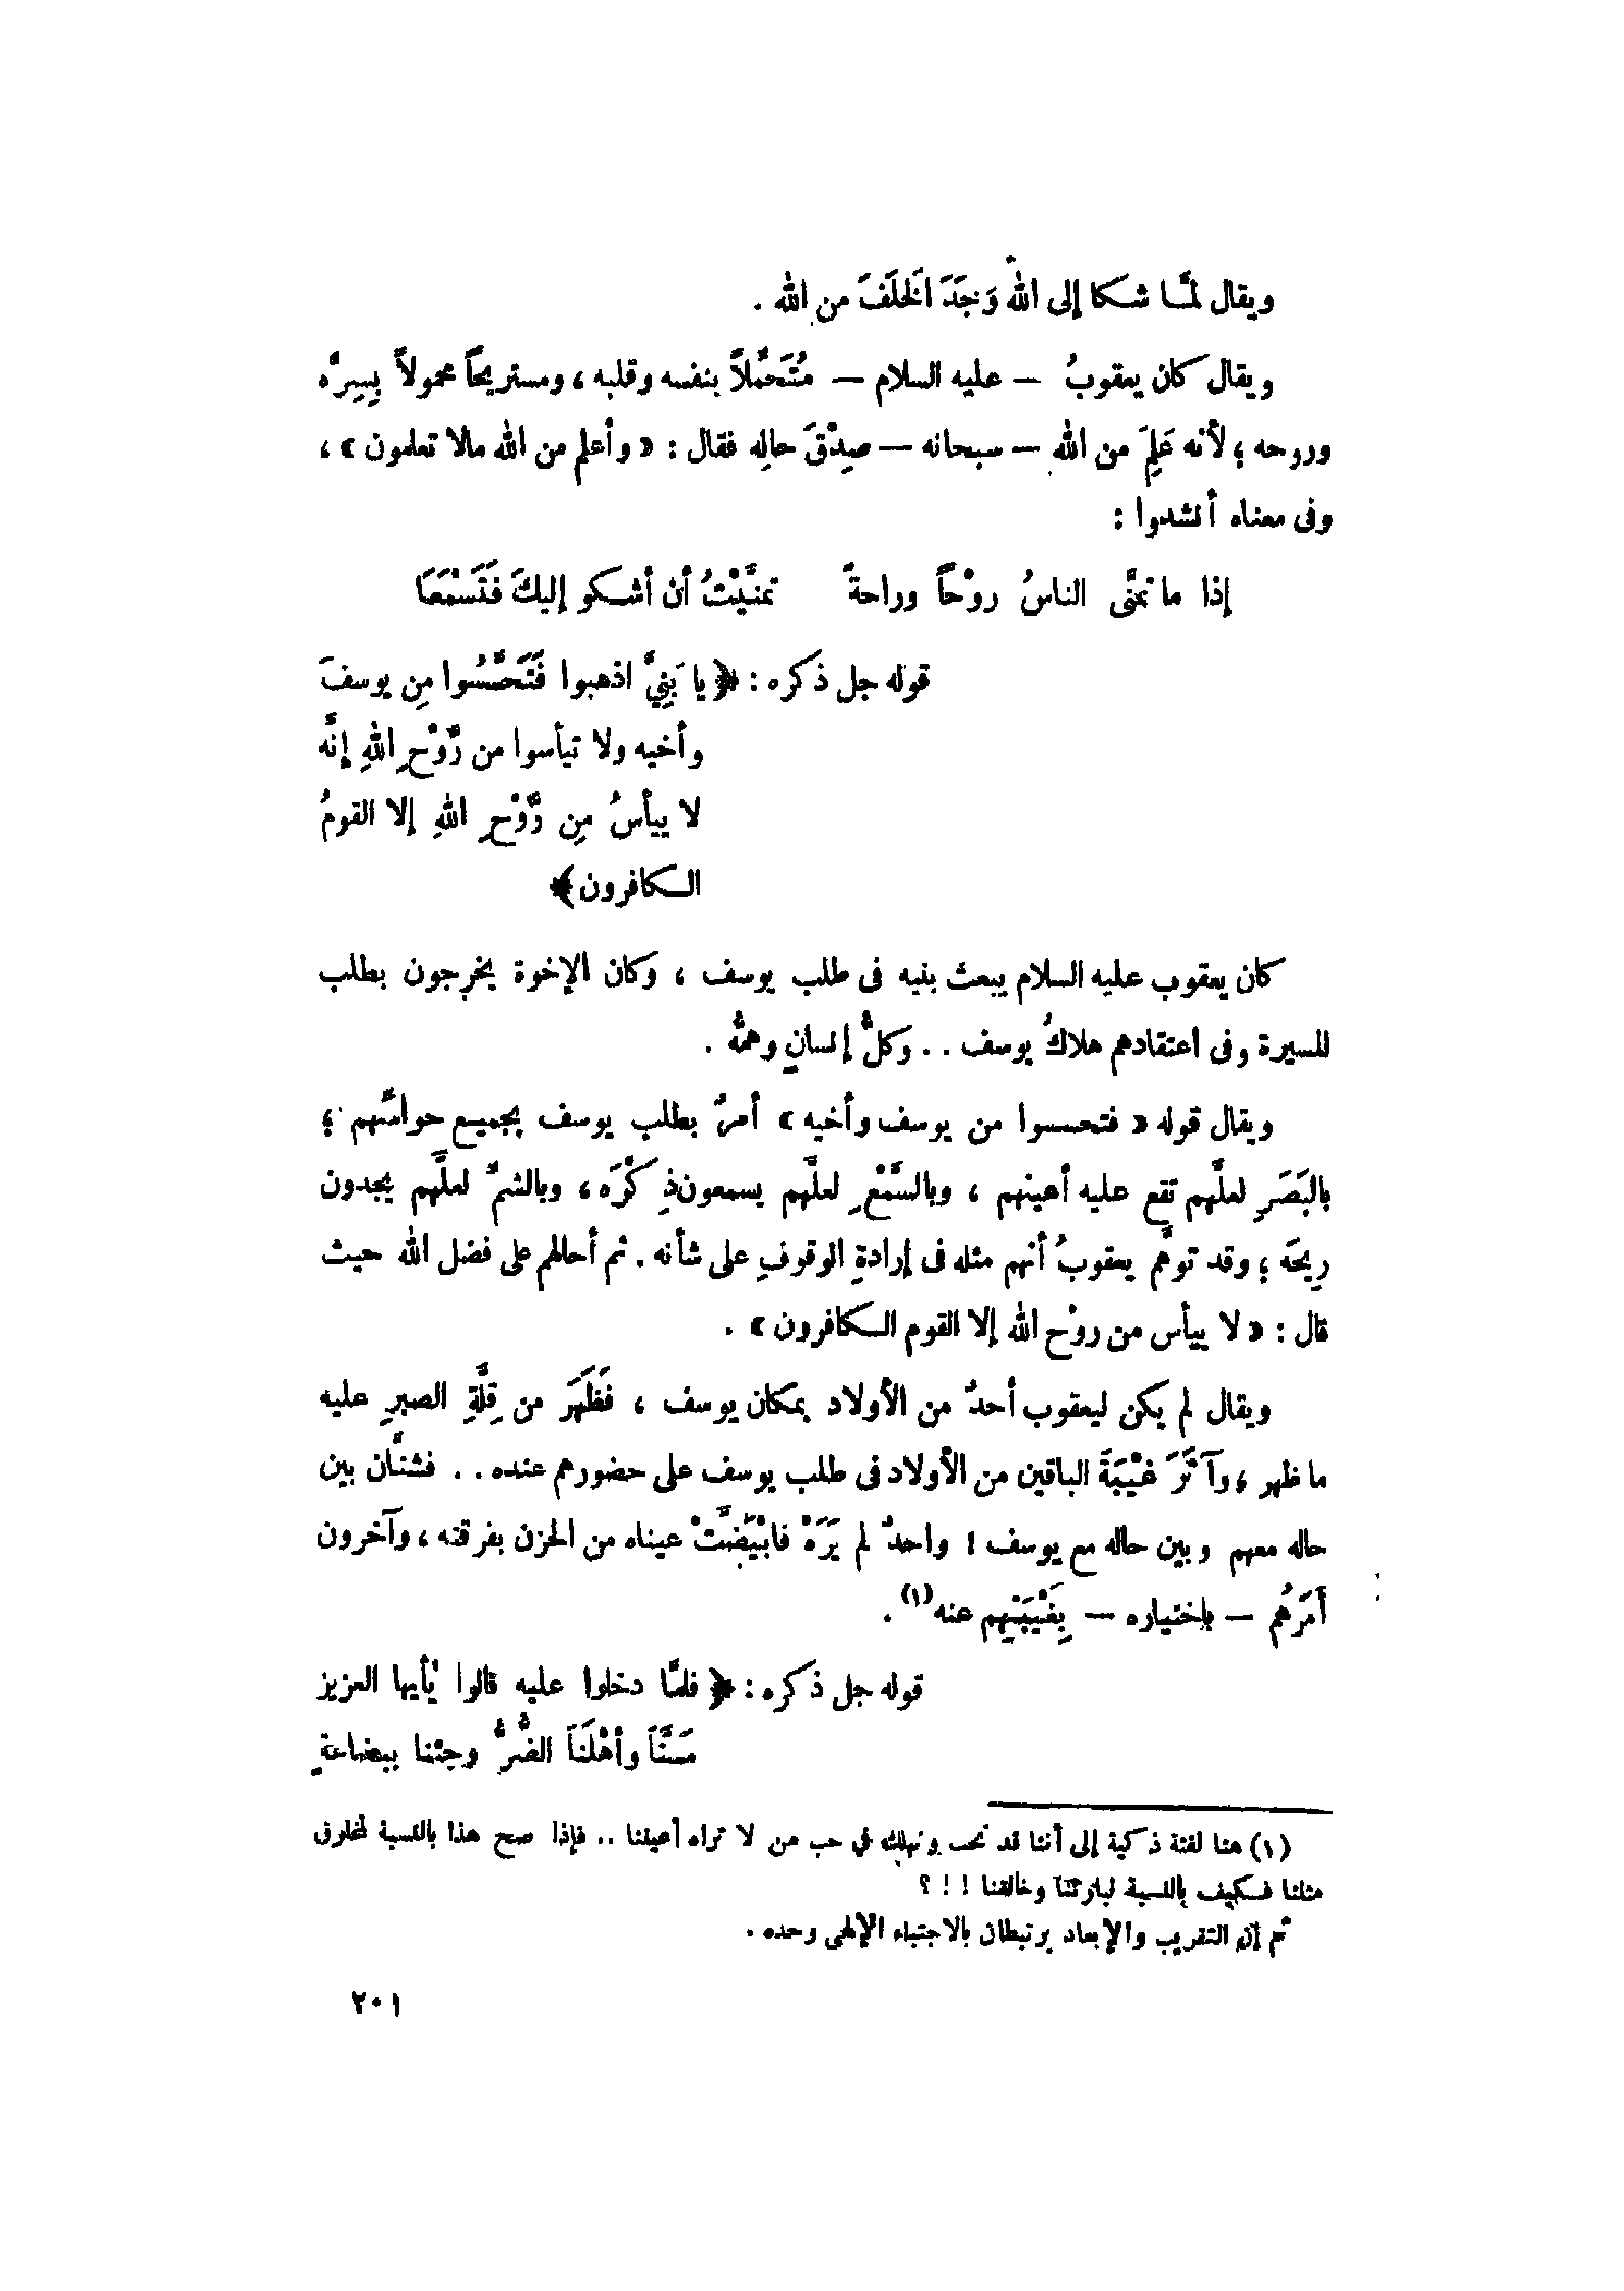 ويقال لمَّا شكا إلى الله وَجَدَ الخَلَفَ من الله .
ويقال كان يعقوبُ — عليه السلام — مُتَحَمِّلاً بنفسه وقلبه ، ومستريحاً محمولاً بِسِرِّه
وروحه ؛ لأنه عَلِمَ من الله — سبحانه — صِدْقَ حالِه فقال : « وأعلم من الله مالا تعلمون » ،
وفى معناه أنشدوا :
إذا ما تمنَّى الناسُ روْحاً وراحةً تمنَّيْتُ أن أشكو إليكَ فَتَسْمَعَا
قوله جل ذكره : ﴿ يا بَنِيَّ اذهبوا فَتَحَسَّسُوا مِن يوسفَ
وأخيه ولا تيأسوا من رَّوْحِ اللهِ إنَّه
لا ييأسُ مِن رَّوْحِ اللهِ إلا القومُ
الكافرون ﴾
كان يعقوب عليه السلام يبعث بنيه فى طلب يوسف ، وكان الإخوة يخرجون بطلب
المسيرة وفى اعتقادهم هلاكُ يوسف . . وكلُّ إنسانٍ وهمُّه .
ويقال قوله « فتحسسوا من يوسف وأخيه » أمرٌ بطلب يوسف بجميع حواسِّهم ؛
بالبَصَرِ لعلَّهم تقع عليه أعينهم ، وبالسَّمْعِ لعلَّهم يسمعون ذِكْرَه ، وبالشمِّ لعلَّهم يجدون
رِيحَه ؛ وقد توهَّم يعقوبُ أنهم مثله فى إرادةِ الوقوفِ على شأنه . ثم أحالهم على فضل الله حيث
قال : « لا ييأس من روْح الله إلا القوم الكافرون » .
ويقال لم يكن ليعقوب أحدٌ من الأولاد بمكان يوسف ، فَظَهَرَ من قِلَّةِ الصبرِ عليه
ما ظهر ، وآثَرَ غَيْبَةَ الباقين من الأولاد فى طلب يوسف على حضورهم عنده . . فشتَّان بين
حاله معهم وبين حاله مع يوسف ! واحدٌ لم يَرَهْ فابْيَضَّتْ عيناه من الحزن بفرقته ، وآخرون
أَمَرَهُم — باختياره — بِغَيْبَتِهِم عنه (١) .
قوله جل ذكره : ﴿ فلمَّا دخلوا عليه قالوا يٰأيها العزيز
مَسَّنَا وأهْلَنَا الضُّرُّ وجئنا ببضاعةٍ
(١) هنا لفتة ذكية إلى أننا قد نحب ونهلك في حب من لا تراه أعيننا .. فإذا صح هذا بالنسبة لمخلوق
مثلنا فكيف بالنسبة لبارئنا وخالقنا ! ! ؟
ثم إن التقريب والإبعاد يرتبطان بالاجتباء الإلهى وحده .
٢٠١